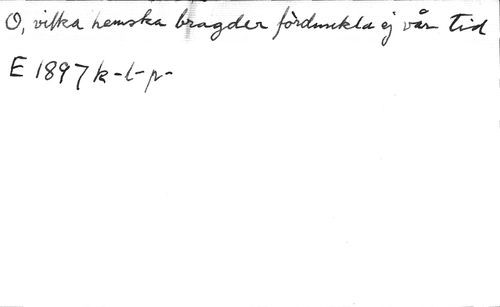 O, vilka hemska bragder fördunkla ej vår tid
E 1897 k-l-p-